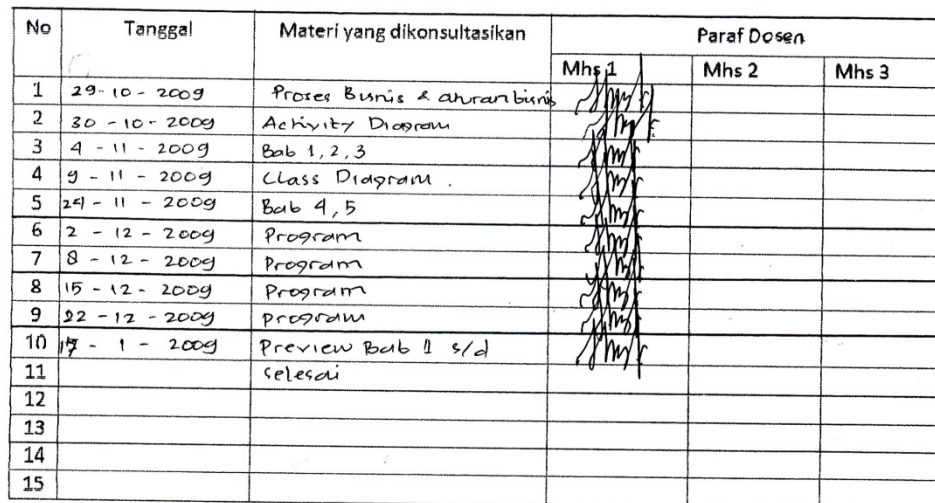 No Tanggal Materi yang dikonsultasikan Paraf Dosen
Mhs 1 Mhs 2 Mhs 3
1 29-10-2009 Proses Bisnis & aturan bisnis
2 30-10-2009 Activity Diagram
3 4-11-2009 Bab 1,2,3
4 9-11-2009 Class Diagram.
5 24-11-2009 Bab 4,5
6 2-12-2009 Program
7 8-12-2009 Program
8 15-12-2009 Program
9 22-12-2009 Program
10 -1-2009 Preview Bab 1 s/d
11 selesai
12
13
14
15